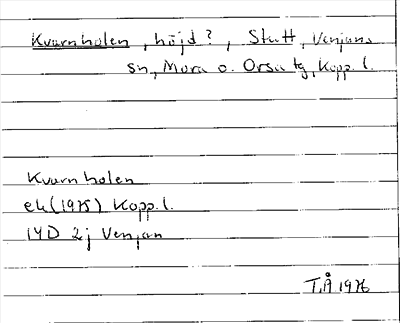 Kvarnholen, höjd?, Skutt, Venjans
sn, Mora o. Orsa tg, Kopp. l.
Kvarnholen
ek (1975) Kopp. l.
14D 2j Venjan
T.Å 1976